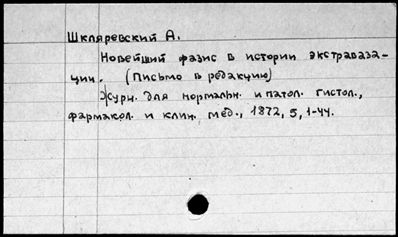 Шкляревский А.
Новейший фазис в истории экстраваза-
ции. (Письмо в редакцию)
Журн. для нормальн. и патол. гистол.,
фармакол. и клин. мед., 1872, 5, 1-44.